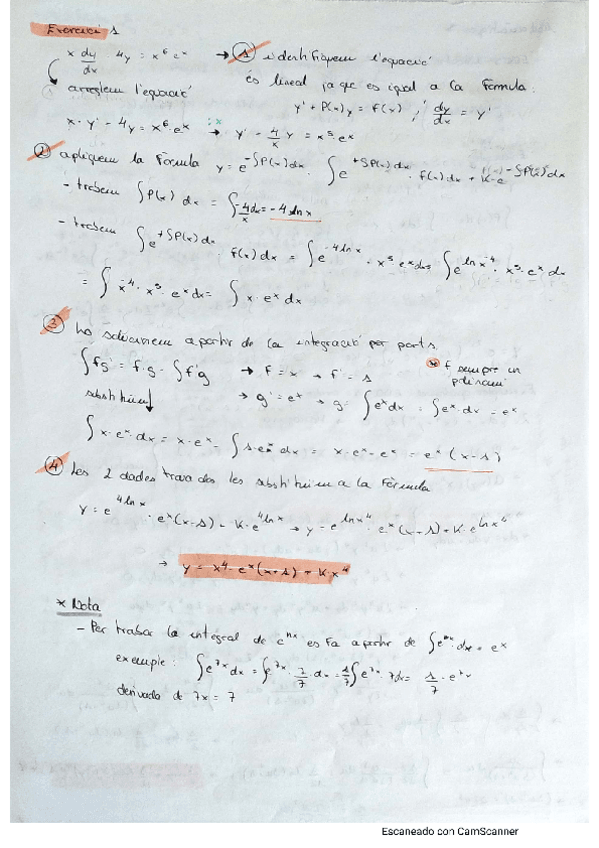 Exercici 1
x dy/dx 4y = x⁶ eˣ → ① identifiquem l'equació
és lineal ja que es igual a la fórmula:
① arreglem l'equació
y' + P(x)y = f(x) ; dy/dx = y'
x · y' - 4y = x⁶ · eˣ → :x y' - 4/x y = x⁵ · eˣ
② apliquem la fórmula y = e^-∫P(x)dx · ∫ e^+∫P(x)dx · f(x) dx + K · e^-∫P(x)dx
- trobem ∫P(x) dx = ∫-4/x dx = -4 ln x
- trobem ∫e^+∫P(x)dx f(x) dx = ∫e^-4 ln x · x⁵ · eˣ dx = ∫e^ln x⁻⁴ · x⁵ · eˣ dx
= ∫ x⁻⁴ · x⁵ · eˣ dx = ∫ x · eˣ dx
③ ho solucionem a partir de la integració per parts.
∫fg' = f·g - ∫f'g → f = x → f' = 1 * f sempre un
polinomi
substituim ↓ → g' = eˣ → g = ∫eˣdx = ∫eˣ · dx = eˣ
∫x · eˣ · dx = x · eˣ - ∫1 · eˣ dx = x · eˣ - eˣ = eˣ (x - 1)
④ les 2 dades trobades les substituim a la fórmula
y = e^4 ln x · eˣ(x-1) + K · e^4 ln x → y = e^ln x⁴ · eˣ(x+1) + K · e^ln x⁴
→ y = x⁴ · eˣ (x+1) + K · x⁴
* Nota
- Per trobar la integral de e^nx es fa a partir de ∫eˣ · dx = eˣ
exemple: ∫e^7x dx = ∫e^7x · 7/7 · dx = 1/7 ∫e^7x · 7dx = 1/7 · e^7x
derivada de 7x = 7
Escaneado con CamScanner